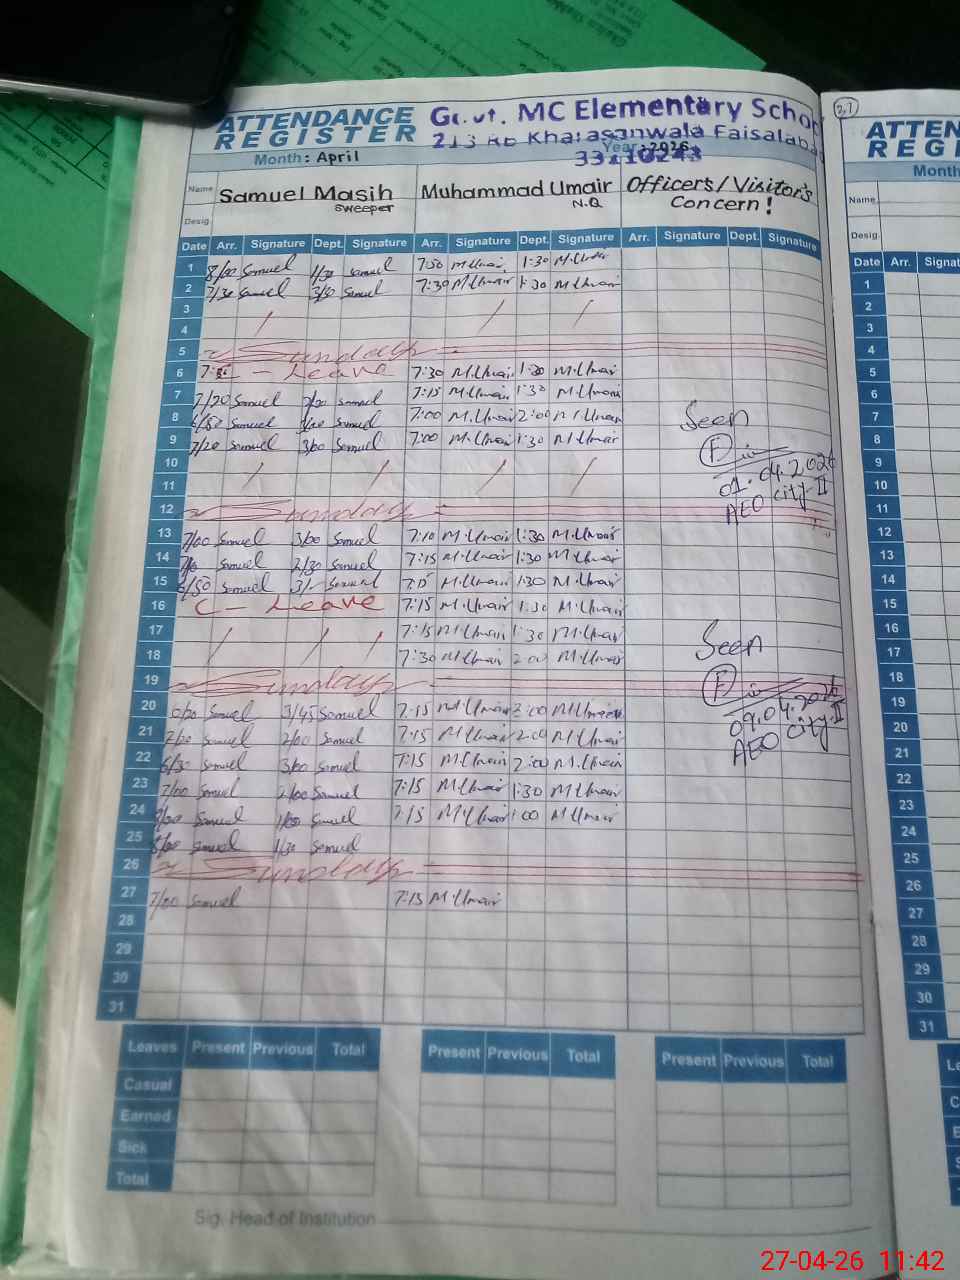 ATTENDANCE
REGISTER
Govt. MC Elementary School
213 RB Kharaganwala Faisalabad
33110243
Month: April
Year: 2026
Name Samuel Masih Muhammad Umair Officers/Visitor's
Desig. Sweeper N.Q Concern!
Date Arr. Signature Dept. Signature Arr. Signature Dept. Signature Arr. Signature Dept. Signature
1 8/00 Samuel 1/30 Samuel 7:30 M.Umair 1:30 M.Umair
2 7/30 Samuel Samuel 7:30 M.Umair 1:30 M.Umair
3
4
5 Sunday
6 C - Leave 7:30 M.Umair 1:30 M.Umair
7 7/20 Samuel Samuel 7:15 M.Umair 1:30 M.Umair
8 Samuel Samuel 7:00 M.Umair 2:00 M.Umair Seen
9 7/20 Samuel 3/00 Samuel 7:00 M.Umair 1:30 M.Umair
10 01.04.2026
11 AEO City-II
12 Sunday
13 7/00 Samuel 3/00 Samuel 7:10 M.Umair 1:30 M.Umair
14 Samuel 2/30 Samuel 7:15 M.Umair 1:30 M.Umair
15 6/50 Samuel 3/- Samuel 7:15 M.Umair 1:30 M.Umair
16 C - Leave 7:15 M.Umair 1:30 M.Umair
17 7:15 M.Umair 1:30 M.Umair Seen
18 7:30 M.Umair 2:00 M.Umair
19 Sunday
20 Samuel 3/45 Samuel 7:15 M.Umair 2:00 M.Umair 09.04.2026
21 Samuel 2/00 Samuel 7:15 M.Umair 2:00 M.Umair AEO City-II
22 6/30 Samuel 3/00 Samuel 7:15 M.Umair 2:00 M.Umair
23 7/00 Samuel 2/00 Samuel 7:15 M.Umair 1:30 M.Umair
24 Samuel Samuel 7:15 M.Umair 1:00 M.Umair
25 8/00 Samuel 1/30 Samuel
26 Sunday
27 7/00 Samuel 7:15 M.Umair
28
29
30
31
Leaves Present Previous Total Present Previous Total Present Previous Total
Casual
Earned
Sick
Total
Sig. Head of Institution
37
ATTEN
REG
Month
Name
Desig.
Date Arr. Signat
1
2
3
4
5
6
7
8
9
10
11
12
13
14
15
16
17
18
19
20
21
22
23
24
25
26
27
28
29
30
31
27-04-26 11:42